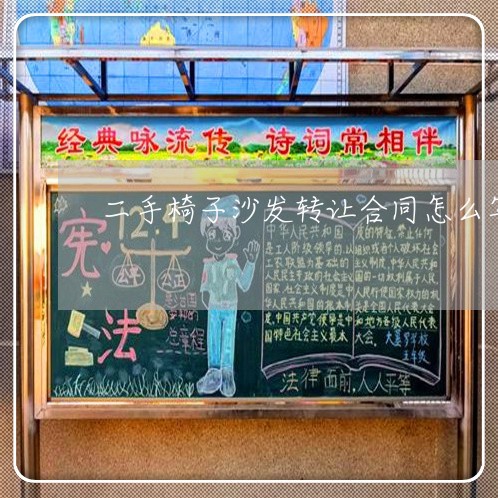 经典咏流传 诗词常相伴
二手椅子沙发转让合同怎么写
12.4
宪法
公平
公正
总章程
中华人民共和国
是工人阶级领导的,以
工农联盟为基础的
人民民主专政的社会主义
国家,社会主义制度是中
华人民共和国的根本制
度,中国共产党领导是中
国特色社会主义最本
质的特征,禁止任何
组织或者个人破坏社会
主义制度,中华人民共和
国的一切权利属于人民,
人民行使国家权力的机
关是全国人民代表大会
和地方各级人民代表
大会。
五年级
法律面前,人人平等